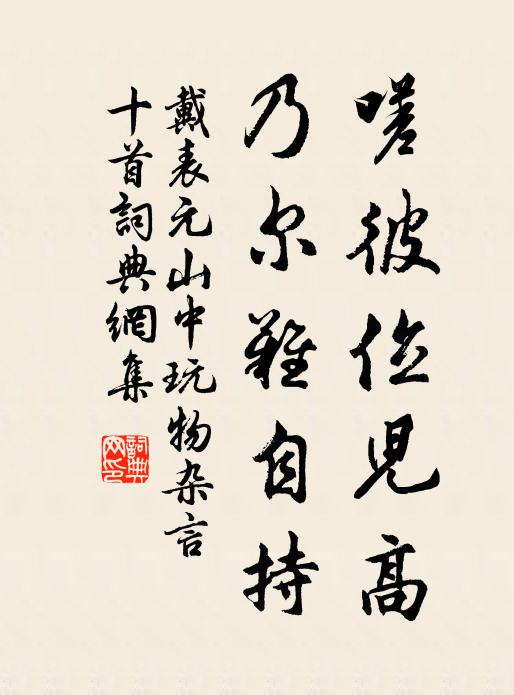 嗟彼位児高
乃尔難自持
戴表元山中玩物杂言
十首詞典網集
詞典
网印